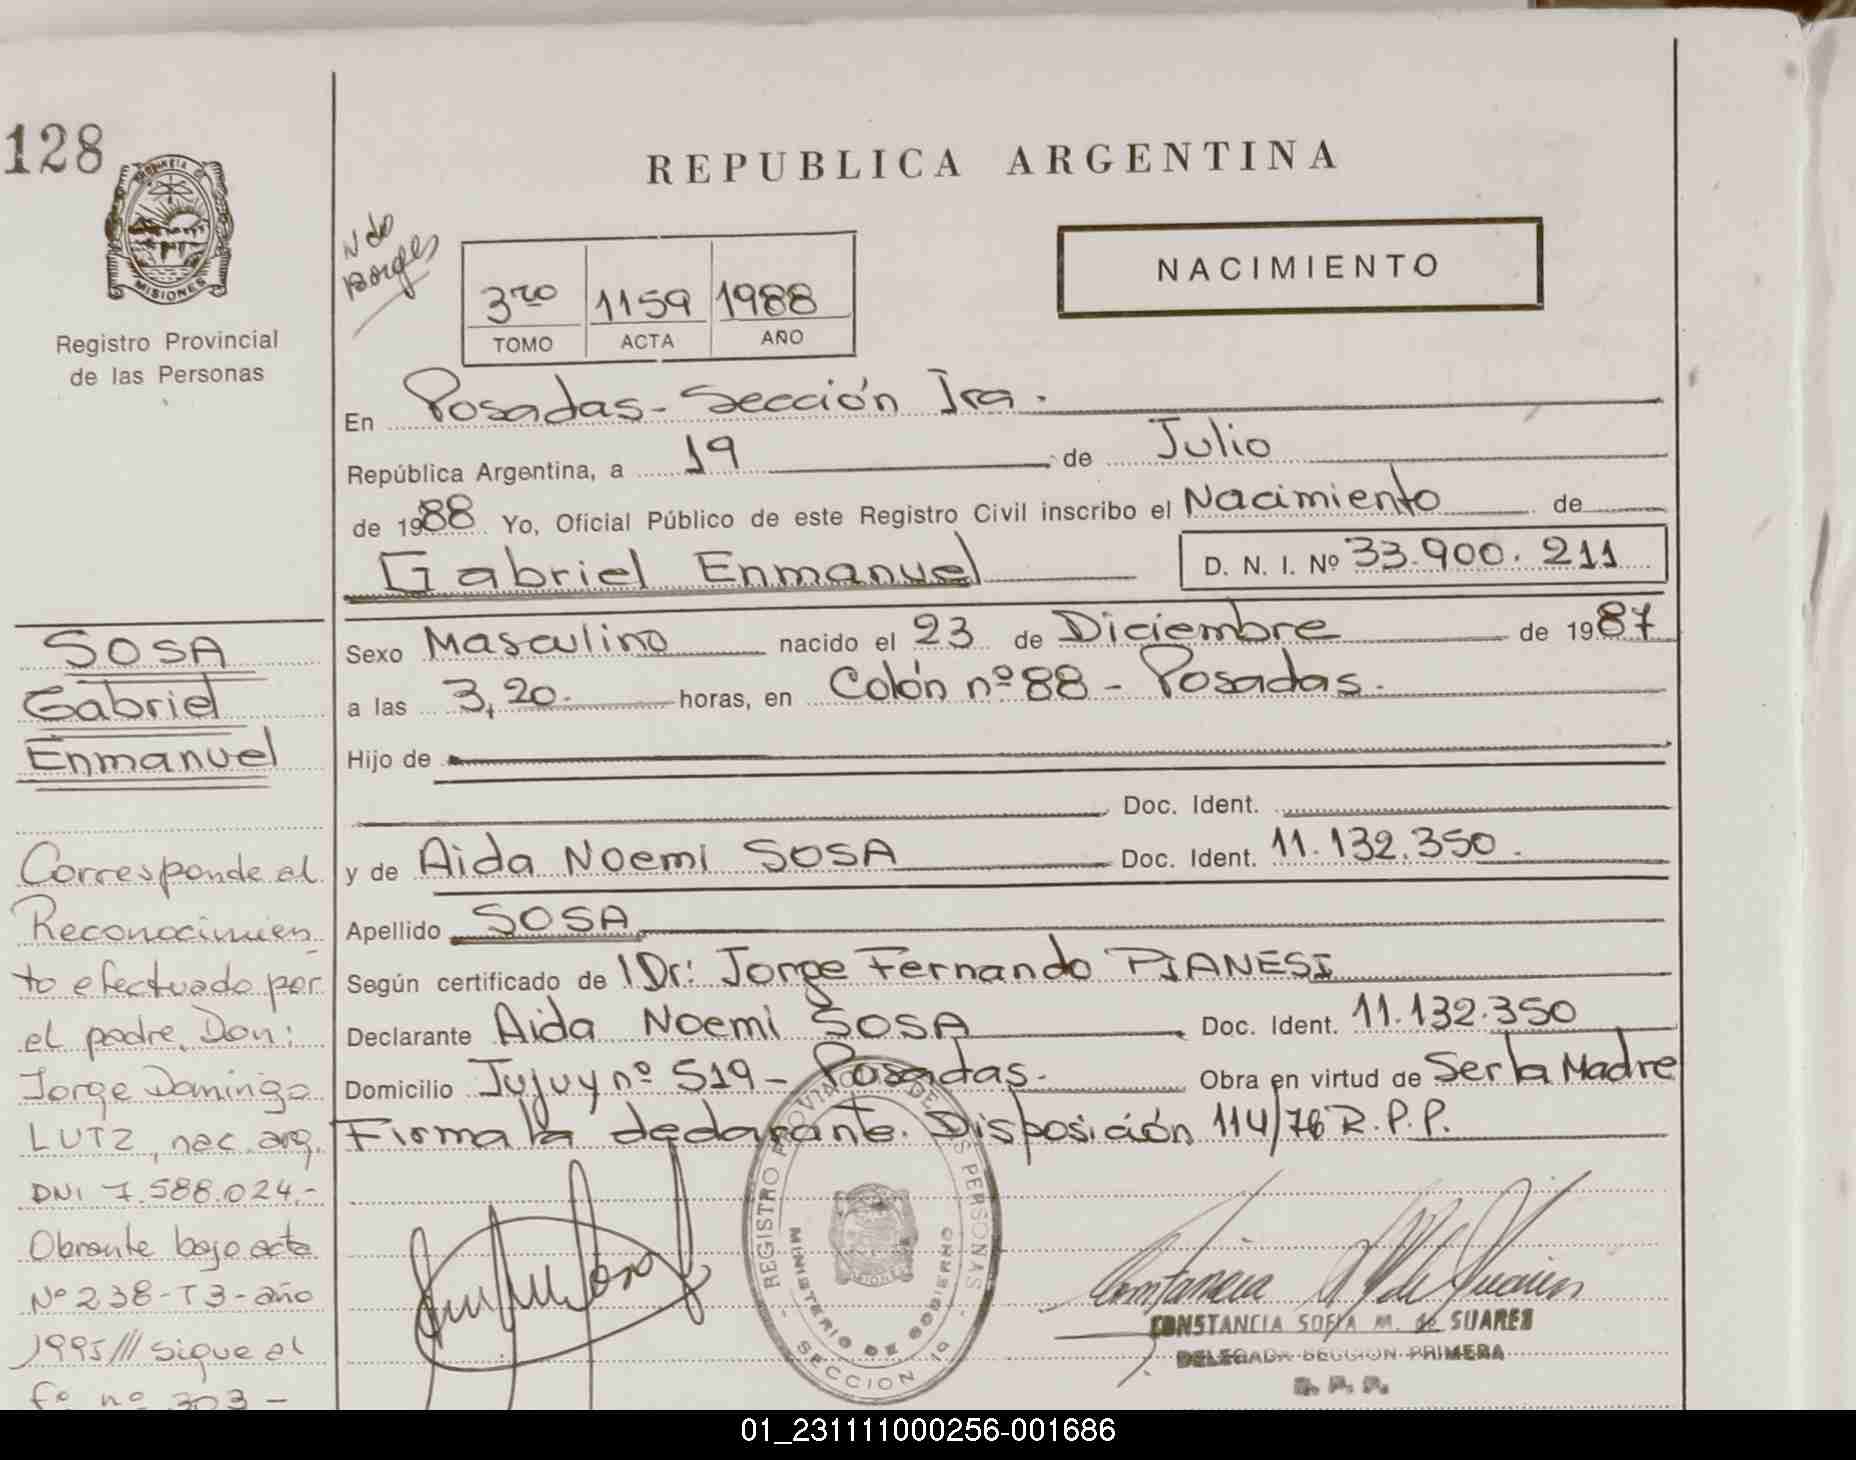 128
PROVINCIA DE
MISIONES
Registro Provincial
de las Personas
REPUBLICA ARGENTINA
N do
Borges
3ro 1159 1988
TOMO ACTA AÑO
NACIMIENTO
En Posadas - Sección Ira.
República Argentina, a 19 de Julio
de 1988 Yo, Oficial Público de este Registro Civil inscribo el Nacimiento de
Gabriel Enmanuel D. N. I. Nº 33.900.211
Sexo Masculino nacido el 23 de Diciembre de 1987
a las 3,20. horas, en Colón nº 88 - Posadas.
Hijo de
Doc. Ident.
y de Aida Noemi SOSA Doc. Ident. 11.132.350.
Apellido SOSA
Según certificado de Dr: Jorge Fernando PIANESI
Declarante Aida Noemi SOSA Doc. Ident. 11.132.350
Domicilio Jujuy nº 519 - Posadas. Obra en virtud de Ser la Madre
Firma la declarante. Disposición 114/76 R.P.P.
SOSA
Gabriel
Enmanuel
Corresponde al
Reconocimien
to efectuado por
el padre, Don:
Jorge Domingo
LUTZ, nac. arg.
DNI 7.588.024.-
Obrante bajo acta
Nº 238-T3-año
1995/// sigue al
fº nº 303 -
REGISTRO PROVINCIAL DE LAS PERSONAS
MINISTERIO DE GOBIERNO
SECCION 1a
CONSTANCIA SOFIA M. de SUAREZ
DELEGADA SECCION PRIMERA
R. P. P.
01_231111000256-001686